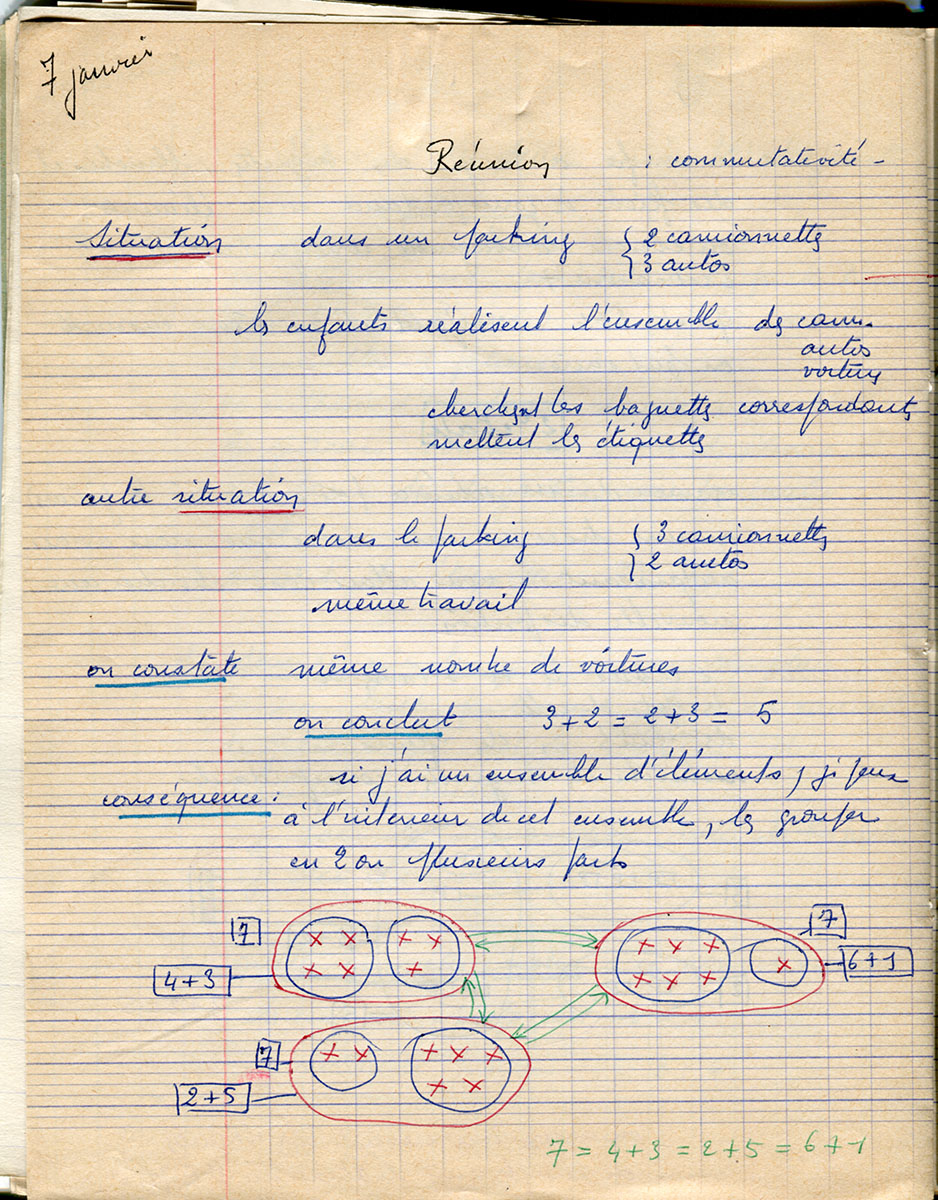 7 janvier
Réunion : commutativité -
Situation dans un parking { 2 camionnettes
3 autos
les enfants réalisent l'ensemble des cam.
autos
voitures
cherchent les baguettes correspondants
mettent les étiquettes
autre situation
dans le parking { 3 camionnettes
2 autos
même travail
on constate même nombre de voitures
on conclut 3+2 = 2+3 = 5
si j'ai un ensemble d'éléments, je peux
conséquence : à l'intérieur de cet ensemble, les grouper
en 2 ou plusieurs parts
7 7
4+3 6+1
7
2+5
7 = 4+3 = 2+5 = 6+1